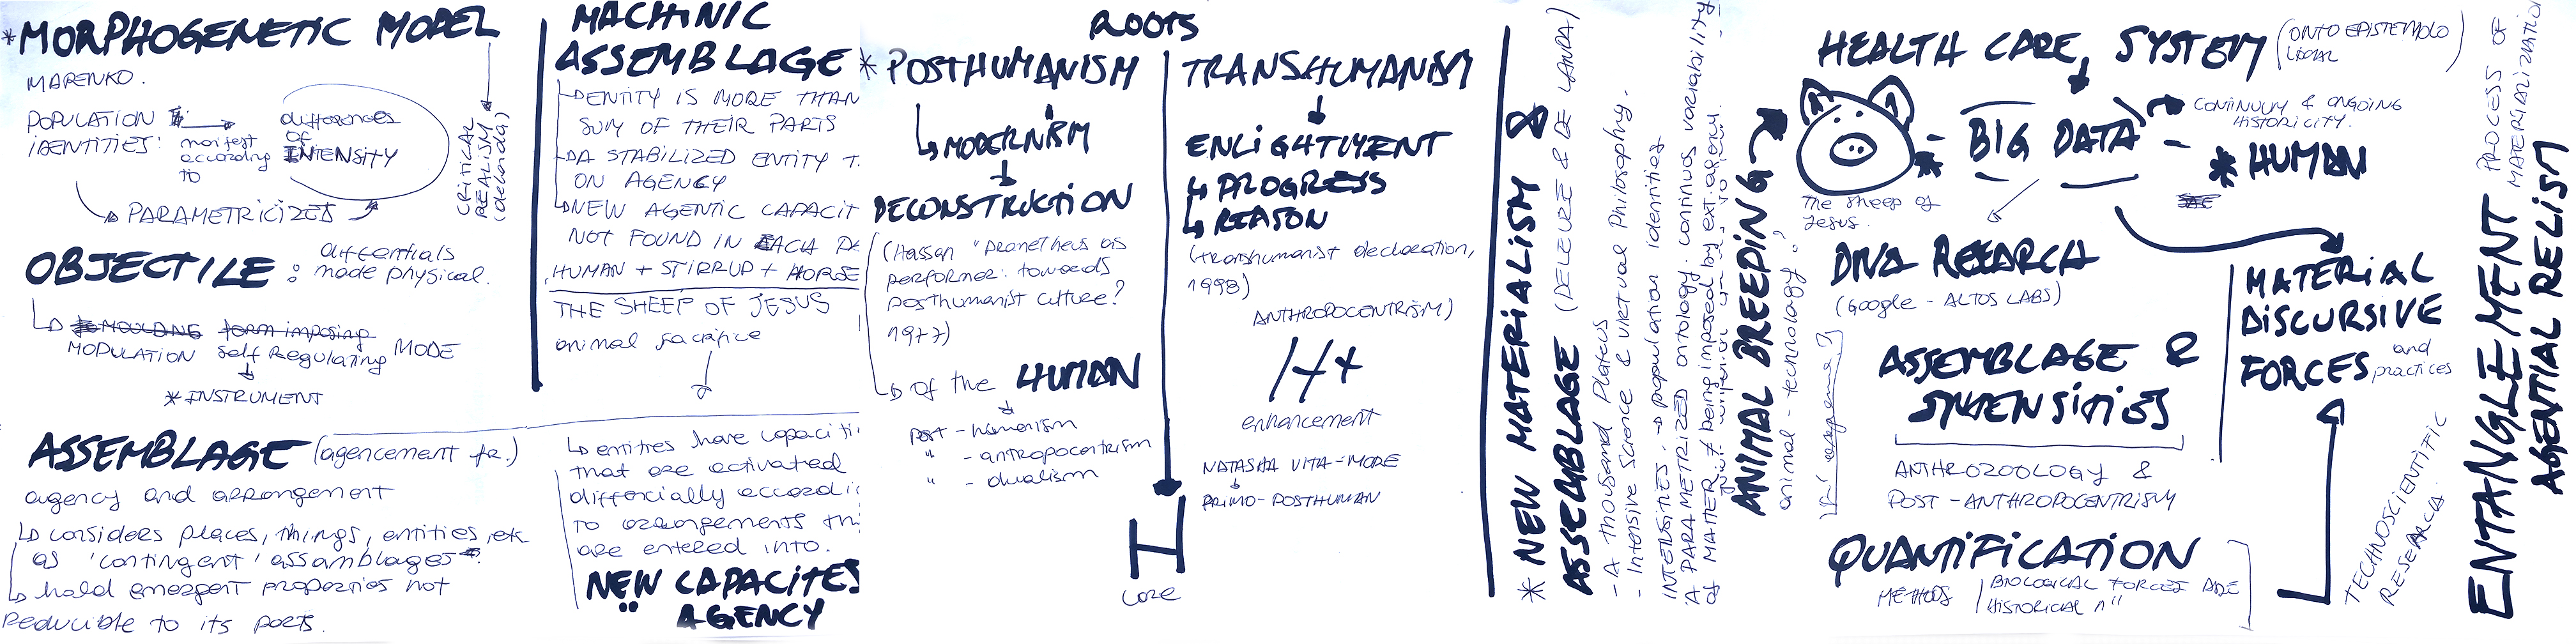 *MORPHOGENETIC MODEL
MARENKO.
POPULATION
IDENTITIES:
manifest
according
to
differences
OF
INTENSITY
PARAMETRICIZED
CRITICAL
REALISM
(delanda)
OBJECTILE:
differentials
made physical.
MOULDING form imposing
MODULATION self Regulating MODE
*INSTRUMENT
ASSEMBLAGE (agencement fr.)
agency and arrangement
considers places, things, entities, etc
as 'contingent' assamblages
hold emergent properties not
Reducible to its parts.
MACHINIC
ASSEMBLAGE
ENTITY IS MORE THAN
SUM OF THEIR PARTS
A STABILIZED ENTITY T.
ON AGENCY
NEW AGENTIC CAPACIT
NOT FOUND IN EACH PA
HUMAN + STIRRUP + HORSE
THE SHEEP OF JESUS
animal sacrifice
entities have capaciti
that are activated
differcially accordi
TO arrangements th
are entered into.
NEW CAPACITES
" AGENCY
ROOTS
* POSTHUMANISM
MODERNISM
DECONSTRUCTION
(Hassan "Prometheus as
performer: towards
posthumanist culture?
1977)
of the HUMAN
POST - humanism
" - antropocentrism
" - dualism
TRANSHUMANISM
ENLIGHTMENT
PROGRESS
REASON
(transhumanist declaration,
1998)
ANTHROPOCENTRISM)
H+
enhancement
NATASHA VITA-MORE
PRIMO-POSTHUMAN
CORE
* NEW MATERIALISM &
ASSEMBLAGE (DELEUZE & DE LANDA)
- A thousand Plateus
- Intensive Science & virtual Philosophy.
INTENSITIES. → population identities
'A PARAMETRIZED ontology. continuos variability
of MATTER ≠ being imposed by ext. agency.
ANIMAL BREEDING
animal - technology"
HEALTH CARE SYSTEM (ONTO EPISTEMOLO
LOGICAL
BIG DATA
CONTINUUM & ONGOING
HISTORICITY.
* HUMAN
The sheep of
Jesus.
DNA RESEARCH
(Google - ALTOS LABS)
ASSEMBLAGE &
INTENSITIES
ANTHROZOOLOGY &
POST-ANTHROPOCENTRISM
QUANTIFICATION
METHODS
BIOLOGICAL FORCES ARE
HISTORICAL n"
MATERIAL
DISCURSIVE
FORCES and
practices
TECHNOSCIENTIFIC
RESEARCH.
ENTANGLEMENT PROCESS OF
MATERIALIZATION
AGENTIAL RELISM